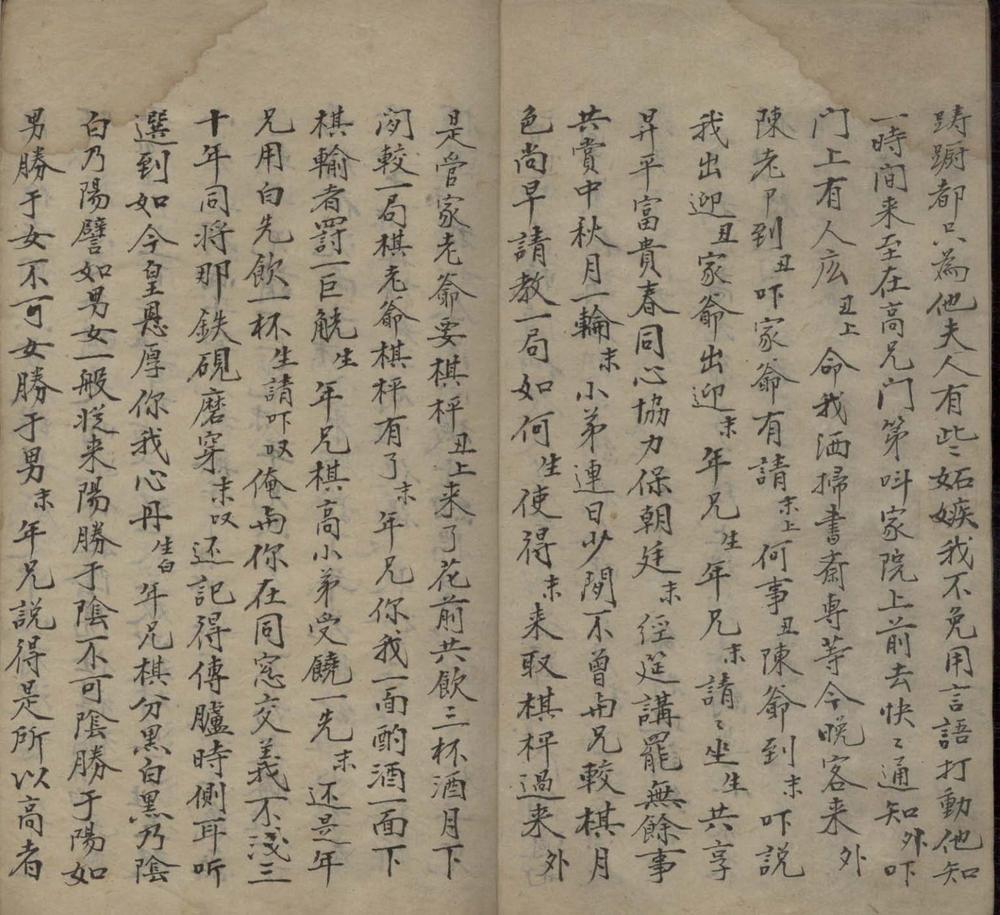 踌蹰都只為他夫人有些〻妬嫉我不免用言語打動他知
一時間来至在高兄门第叫家院上前去快〻通知外吓
门上有人広丑上命我洒掃書斎專等今晚客来外
陳老尸到丑吓家爺有請末上何事丑陳爺到末吓說
我出迎丑家爺出迎末年兄生年兄末請〻坐生共享
昇平富貴春同心協力保朝廷末經筵講罷無餘事
共賞中秋月一輪末小弟連日少閒不曾與兄較棋月
色尚早請教一局如何生使得末来取棋枰過来外
是管家老爺要棋枰丑上来了花前共飲三杯酒月下
閑較一局棋老爺棋枰有了末年兄你我一面酌酒一面下
棋輸者罸一巨觥生年兄棋高小弟受饒一先末还是年
兄用白先飲一杯生請吓叹俺與你在同窓交義不浅三
十年同將那鉄硯磨穿末叹还記得傳臚時側耳听
選到如今皇恩厚你我心丹生白年兄棋分黑白黑乃陰
白乃陽譬如男女一般從来陽勝于陰不可陰勝于陽如
男勝于女不可女勝于男末年兄說得是所以高者